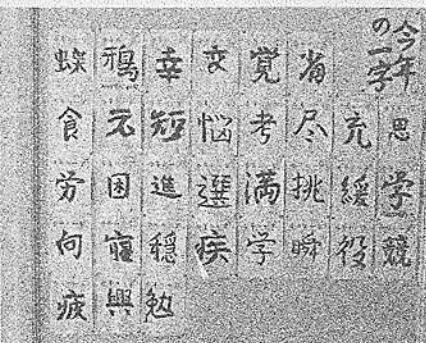 今年
の一字
思学競
充緩役
省尽挑瞬
覚考満学
変悩選疾
幸短進穏勉
鴉元困興
蝶食労向疲